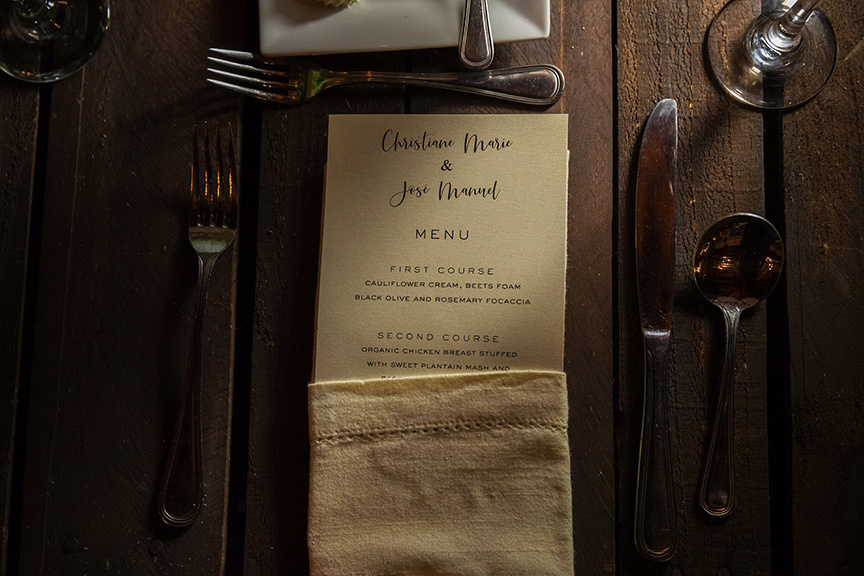 Christiane Marie
&
José Manuel
MENU
FIRST COURSE
CAULIFLOWER CREAM, BEETS FOAM
BLACK OLIVE AND ROSEMARY FOCACCIA
SECOND COURSE
ORGANIC CHICKEN BREAST STUFFED
WITH SWEET PLANTAIN MASH AND